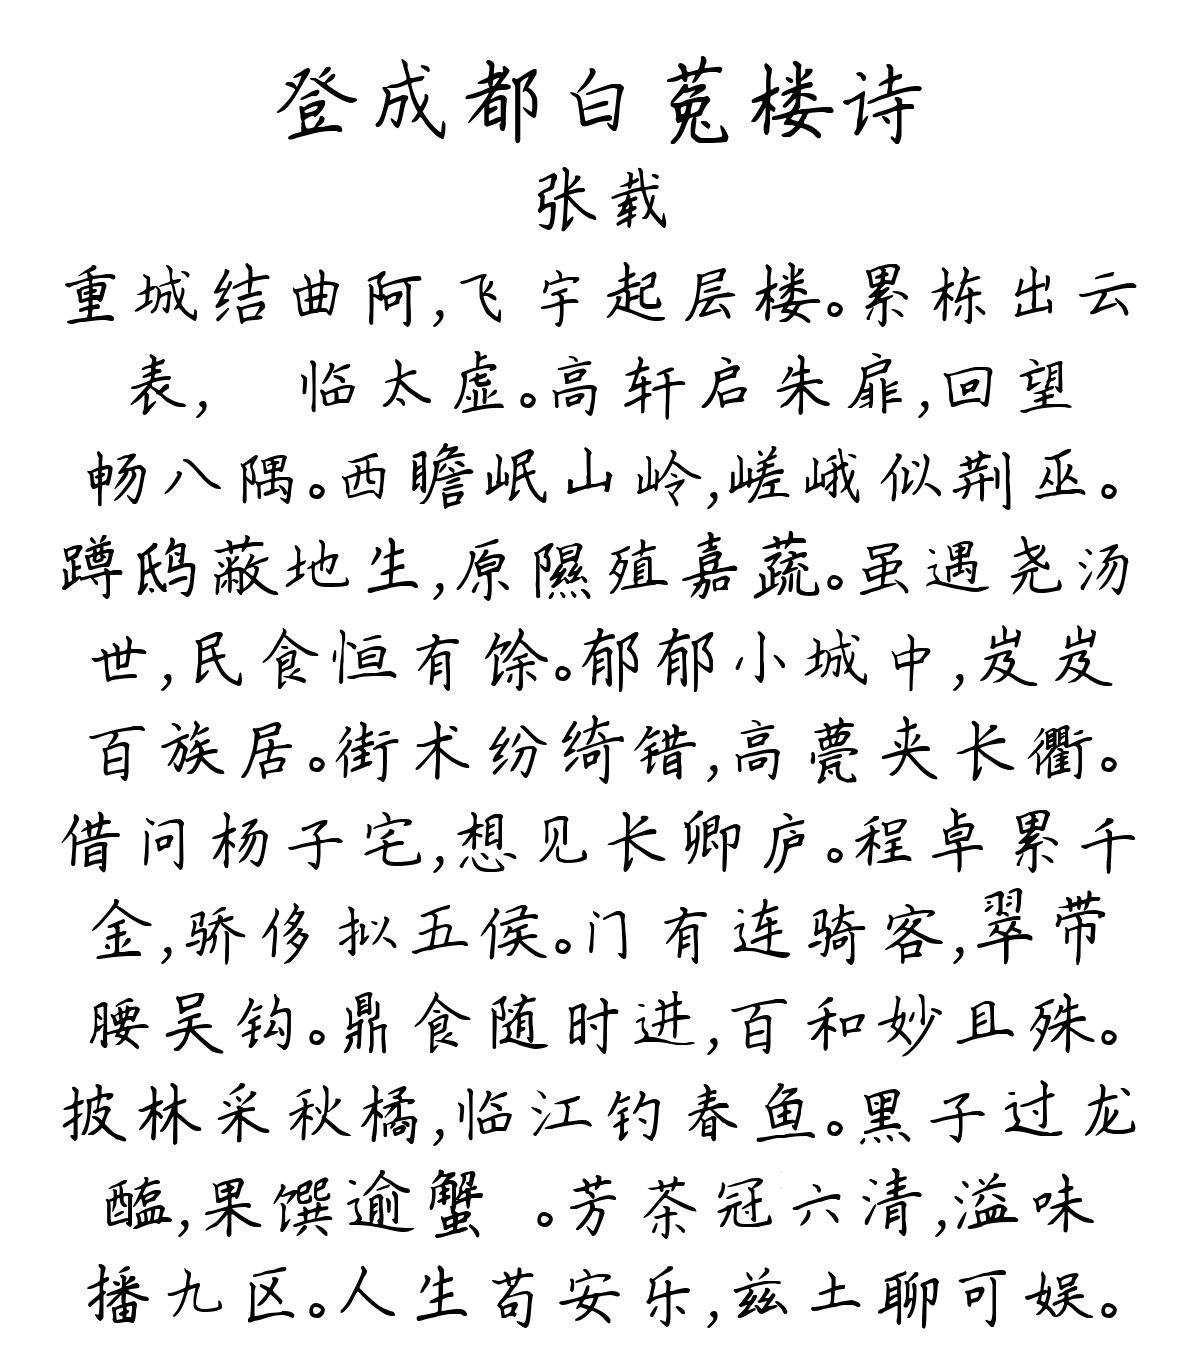 登成都白菟楼诗
张载
重城结曲阿,飞宇起层楼。累栋出云
表, 临太虚。高轩启朱扉,回望
畅八隅。西瞻岷山岭,嵯峨似荆巫。
蹲鸱蔽地生,原隰殖嘉蔬。虽遇尧汤
世,民食恒有馀。郁郁小城中,岌岌
百族居。街术纷绮错,高甍夹长衢。
借问杨子宅,想见长卿庐。程卓累千
金,骄侈拟五侯。门有连骑客,翠带
腰吴钩。鼎食随时进,百和妙且殊。
披林采秋橘,临江钓春鱼。黑子过龙
醢,果馔逾蟹 。芳茶冠六清,溢味
播九区。人生苟安乐,兹土聊可娱。